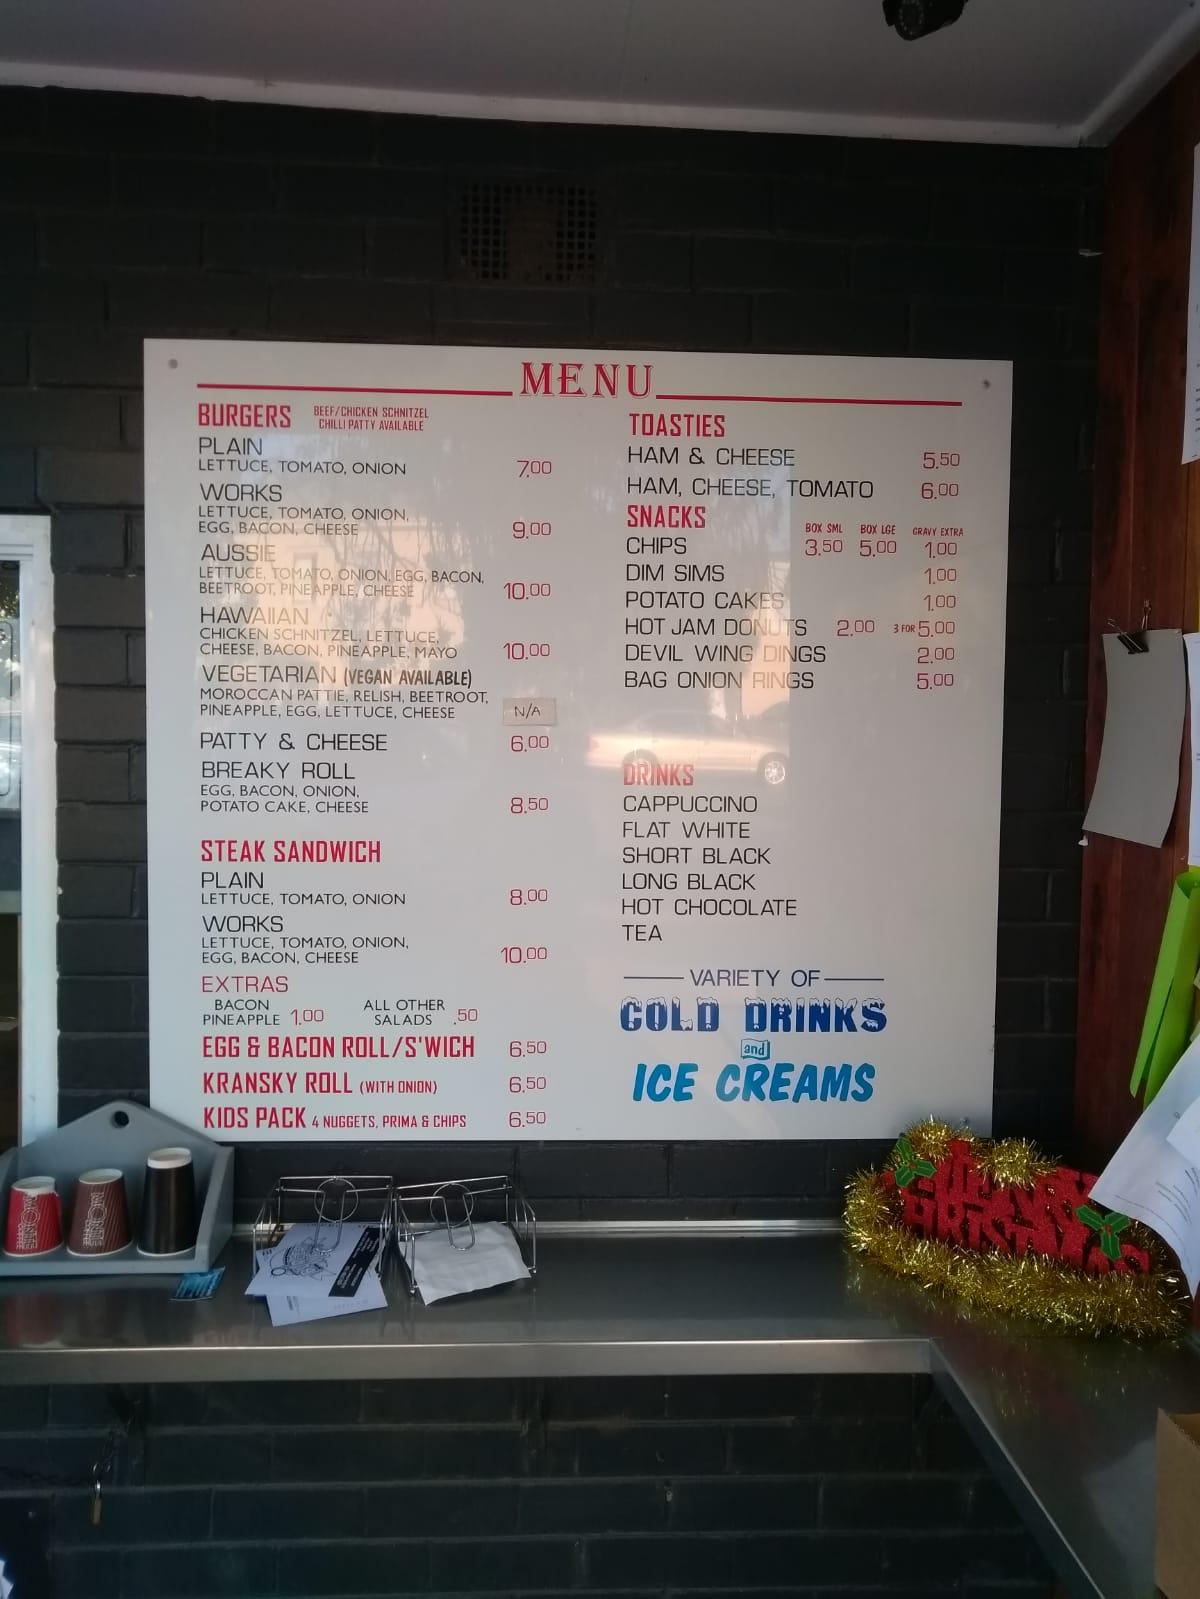 MENU
BURGERS BEEF/CHICKEN SCHNITZEL
CHILLI PATTY AVAILABLE
PLAIN
LETTUCE, TOMATO, ONION 7.00
WORKS
LETTUCE, TOMATO, ONION,
EGG, BACON, CHEESE 9.00
AUSSIE
LETTUCE, TOMATO, ONION, EGG, BACON,
BEETROOT, PINEAPPLE, CHEESE 10.00
HAWAIIAN
CHICKEN SCHNITZEL, LETTUCE,
CHEESE, BACON, PINEAPPLE, MAYO 10.00
VEGETARIAN (VEGAN AVAILABLE)
MOROCCAN PATTIE, RELISH, BEETROOT,
PINEAPPLE, EGG, LETTUCE, CHEESE N/A
PATTY & CHEESE 6.00
BREAKY ROLL
EGG, BACON, ONION,
POTATO CAKE, CHEESE 8.50
STEAK SANDWICH
PLAIN
LETTUCE, TOMATO, ONION 8.00
WORKS
LETTUCE, TOMATO, ONION,
EGG, BACON, CHEESE 10.00
EXTRAS
BACON
PINEAPPLE 1.00
ALL OTHER
SALADS .50
EGG & BACON ROLL/S'WICH 6.50
KRANSKY ROLL (WITH ONION) 6.50
KIDS PACK 4 NUGGETS, PRIMA & CHIPS 6.50
TOASTIES
HAM & CHEESE 5.50
HAM, CHEESE, TOMATO 6.00
SNACKS BOX SML BOX LGE GRAVY EXTRA
CHIPS 3.50 5.00 1.00
DIM SIMS 1.00
POTATO CAKES 1.00
HOT JAM DONUTS 2.00 3 FOR 5.00
DEVIL WING DINGS 2.00
BAG ONION RINGS 5.00
DRINKS
CAPPUCCINO
FLAT WHITE
SHORT BLACK
LONG BLACK
HOT CHOCOLATE
TEA
VARIETY OF
COLD DRINKS
and
ICE CREAMS
MERRY
CHRISTMAS